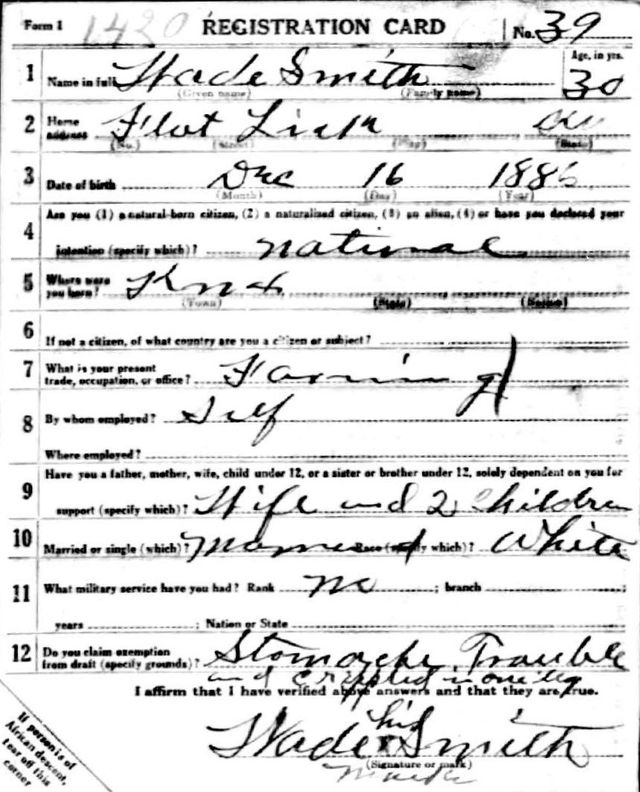 Form 1 1420 REGISTRATION CARD No. 39
1 Name in full Wade Smith Age, in yrs. 30
(Given name) (Family name)
2 Home address Flat Lick
(No.) (Street) (State)
3 Date of birth Dec 16 1886
(Month) (Day) (Year)
4 Are you (1) a natural-born citizen, (2) a naturalized citizen, (3) an alien, (4) or have you declared your
intention (specify which)? national
5 Where were you born? Knox
(Town) (State) (Nation)
6 If not a citizen, of what country are you a citizen or subject?
7 What is your present trade, occupation, or office? Farming
8 By whom employed? Self
Where employed?
9 Have you a father, mother, wife, child under 12, or a sister or brother under 12, solely dependent on you for
support (specify which)? Wife and 2 Children
10 Married or single (which)? Married Race (specify which)? White
11 What military service have you had? Rank no ; branch ;
years ; Nation or State
12 Do you claim exemption from draft (specify grounds)? Stomache Trouble
and Crippled in one leg
I affirm that I have verified above answers and that they are true.
his
Wade x Smith
(Signature or mark)
mark
If person is of
African descent,
tear off this
corner